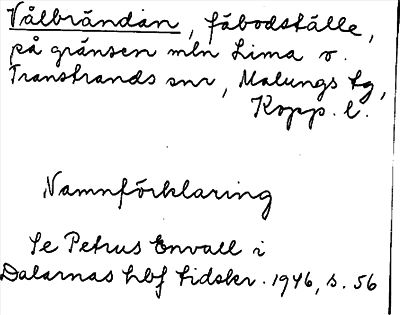 Vålbrändan, fäbodställe,
på gränsen mln Lima o.
Transtrands snr, Malungs tg,
Kopp. l.
Namnförklaring
Se Petrus Envall i
Dalarnas hbf tidskr. 1946, s. 56